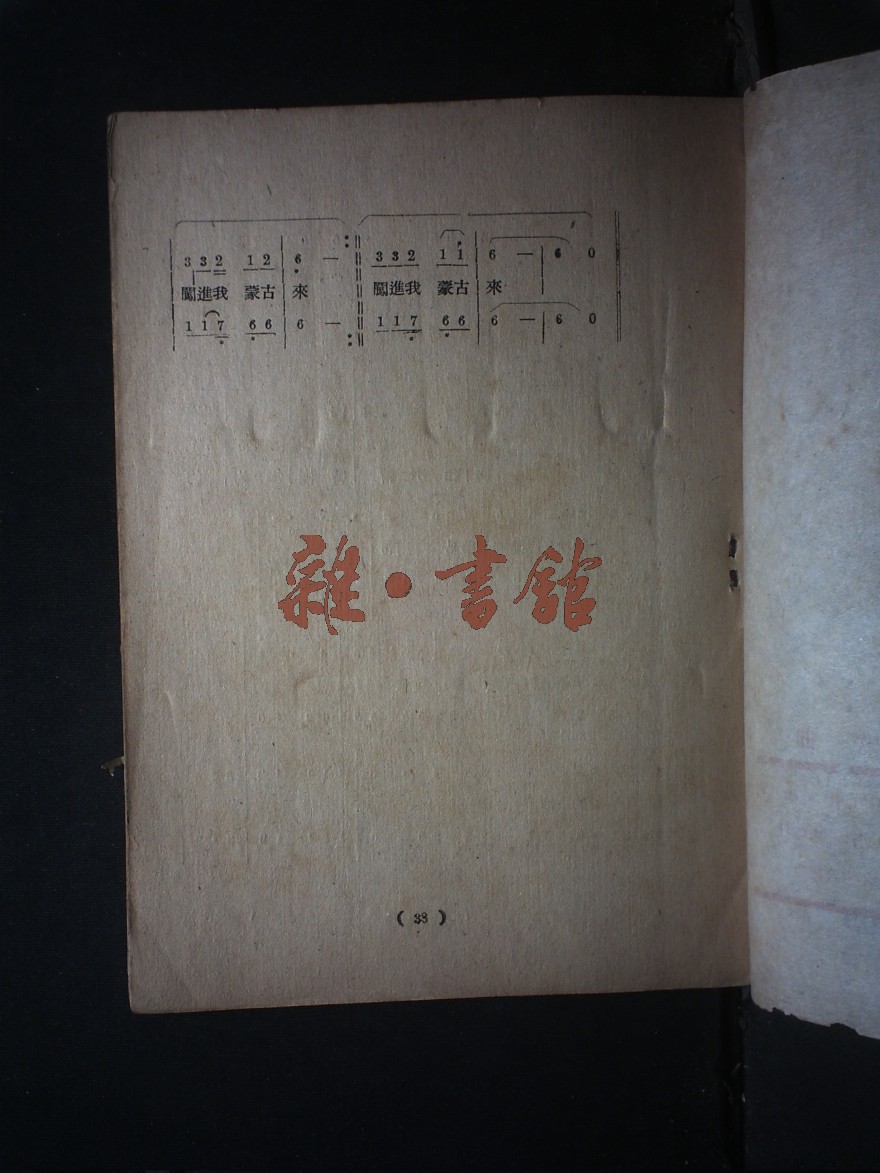 3 3 2 1 2 | 6 — :‖ 3 3 2 1 1 | 6 — | 6 0 ‖
闖進我 蒙古 來 闖進我 蒙古 來
1 1 7 6 6 | 6 — :‖ 1 1 7 6 6 | 6 — | 6 0 ‖
雜·書館
( 38 )